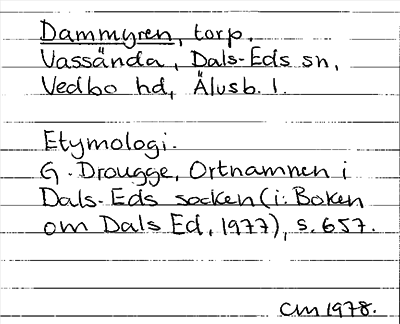 Dammyren, torp.
Vassända, Dals-Eds sn,
Vedbo hd, Älvsb. l.
Etymologi.
G. Drougge, Ortnamnen i
Dals-Eds socken (i: Boken
om Dals Ed, 1977), s. 657.
CM 1978.